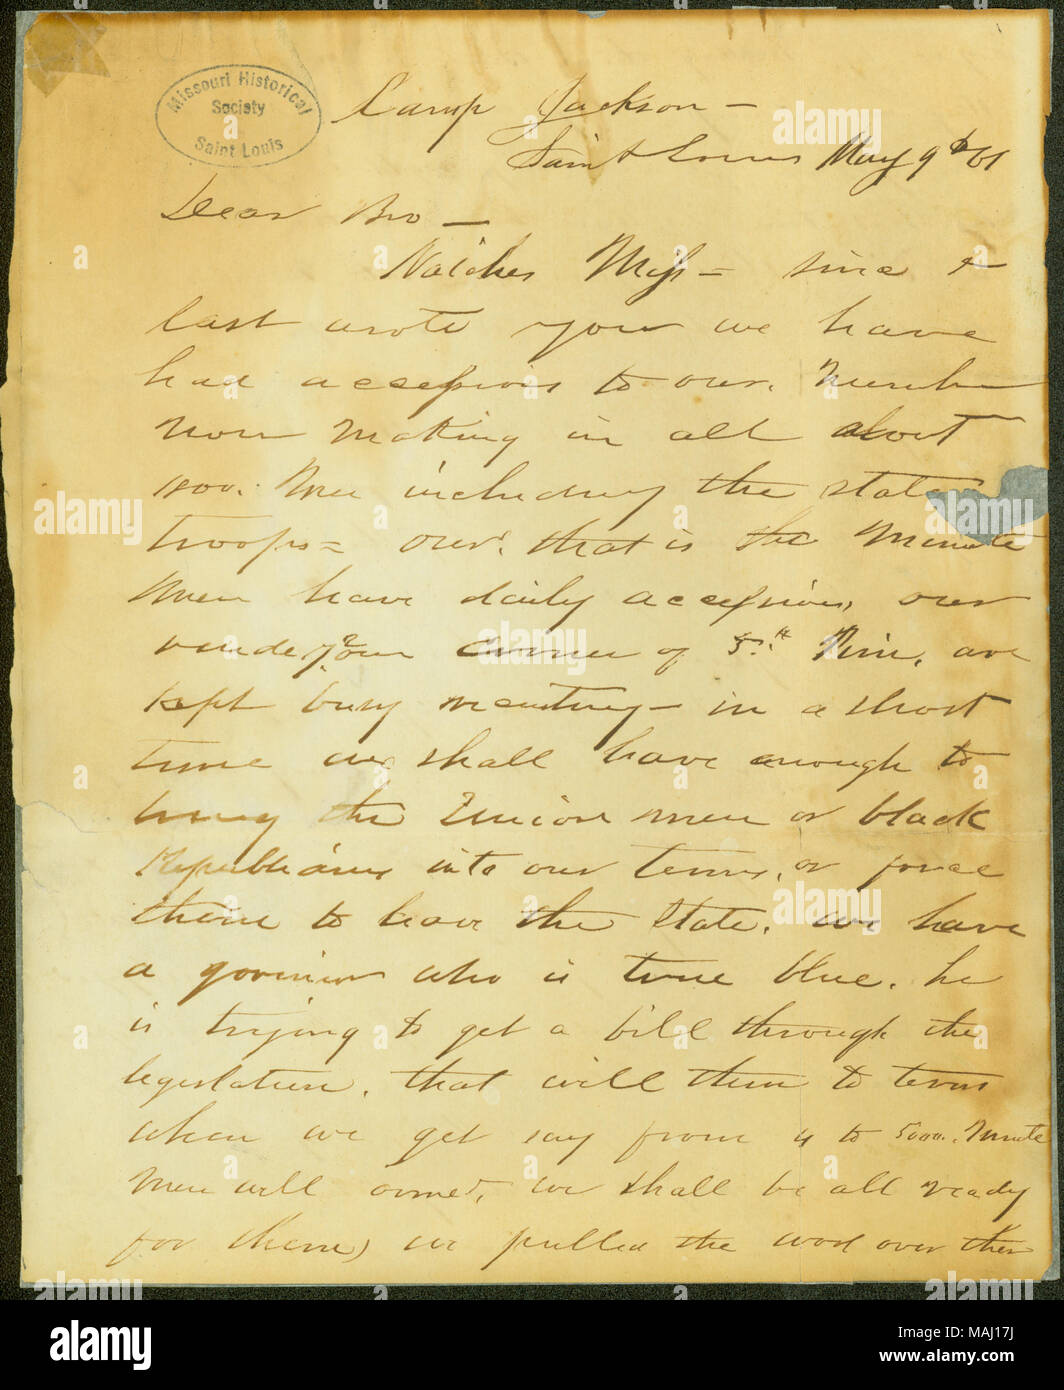 Missouri Historical
Society
Saint Louis
Camp Jackson —
Saint Louis May 9th 61
Dear Bro —
Natches Miss — since I
last wrote you we have
had accessions to our Number
now making in all about
1800. Men including the state
troops = our, that is the Minute
Men have daily accessions, our
rendezvous corner of 5th & Pine, are
kept busy recruiting — in a short
time we shall have enough to
bring the Union men or black
Republicans into our terms, or force
them to leave the State. we have
a govenor who is true blue. he
is trying to get a bill through the
legislature. that will them to terms
when we get say from 4 to 5000. Minute
Men well armed, we shall be all ready
for them) we pulled the wool over their
alamy
Image ID: MAJ17J
www.alamy.com